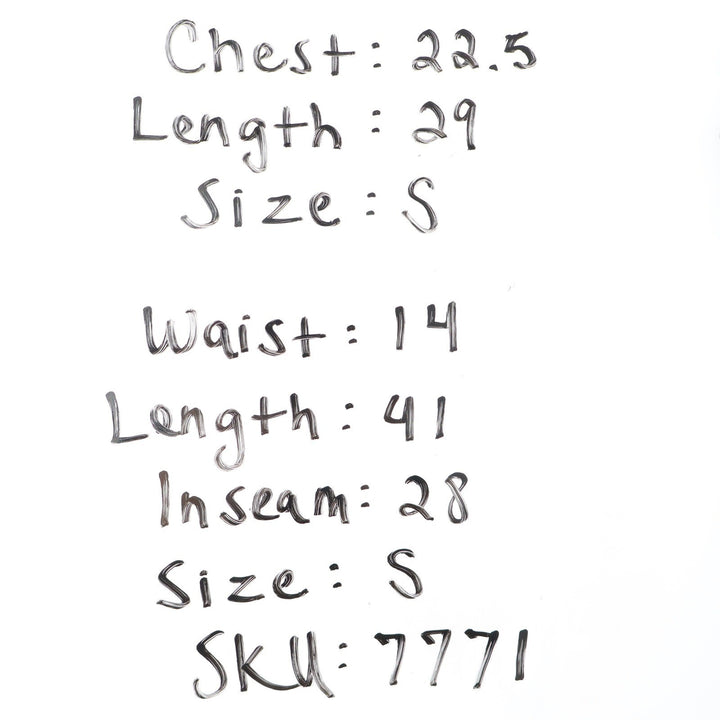 Chest: 22.5
Length: 29
Size: S
Waist: 14
Length: 41
Inseam: 28
Size: S
SKU: 7771